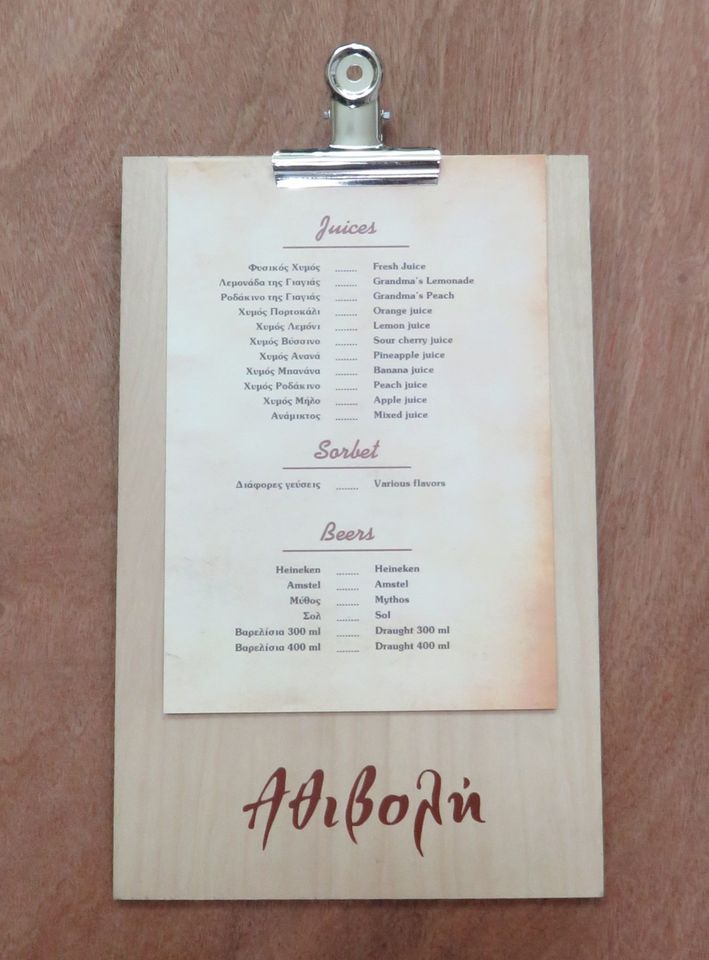 Juices
Φυσικός Χυμός ........ Fresh Juice
Λεμονάδα της Γιαγιάς ........ Grandma's Lemonade
Ροδάκινο της Γιαγιάς ........ Grandma's Peach
Χυμός Πορτοκάλι ........ Orange juice
Χυμός Λεμόνι ........ Lemon juice
Χυμός Βύσσινο ........ Sour cherry juice
Χυμός Ανανά ........ Pineapple juice
Χυμός Μπανάνα ........ Banana juice
Χυμός Ροδάκινο ........ Peach juice
Χυμός Μήλο ........ Apple juice
Ανάμικτος ........ Mixed juice
Sorbet
Διάφορες γεύσεις ........ Various flavors
Beers
Heineken ........ Heineken
Amstel ........ Amstel
Μύθος ........ Mythos
Σολ ........ Sol
Βαρελίσια 300 ml ........ Draught 300 ml
Βαρελίσια 400 ml ........ Draught 400 ml
Αθιβολή